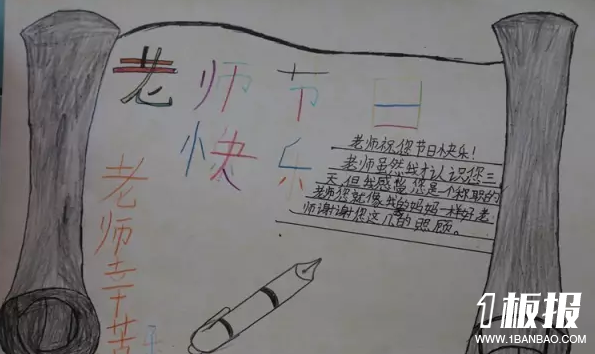 老师节日
快乐
老师祝您节日快乐!
老师虽然我才认识您三
天但我感 您是一个称职的
老师您就像我的妈妈一样好老
师谢谢您这几 的照顾。
老师辛苦
1板报
WWW.1BANBAO.COM